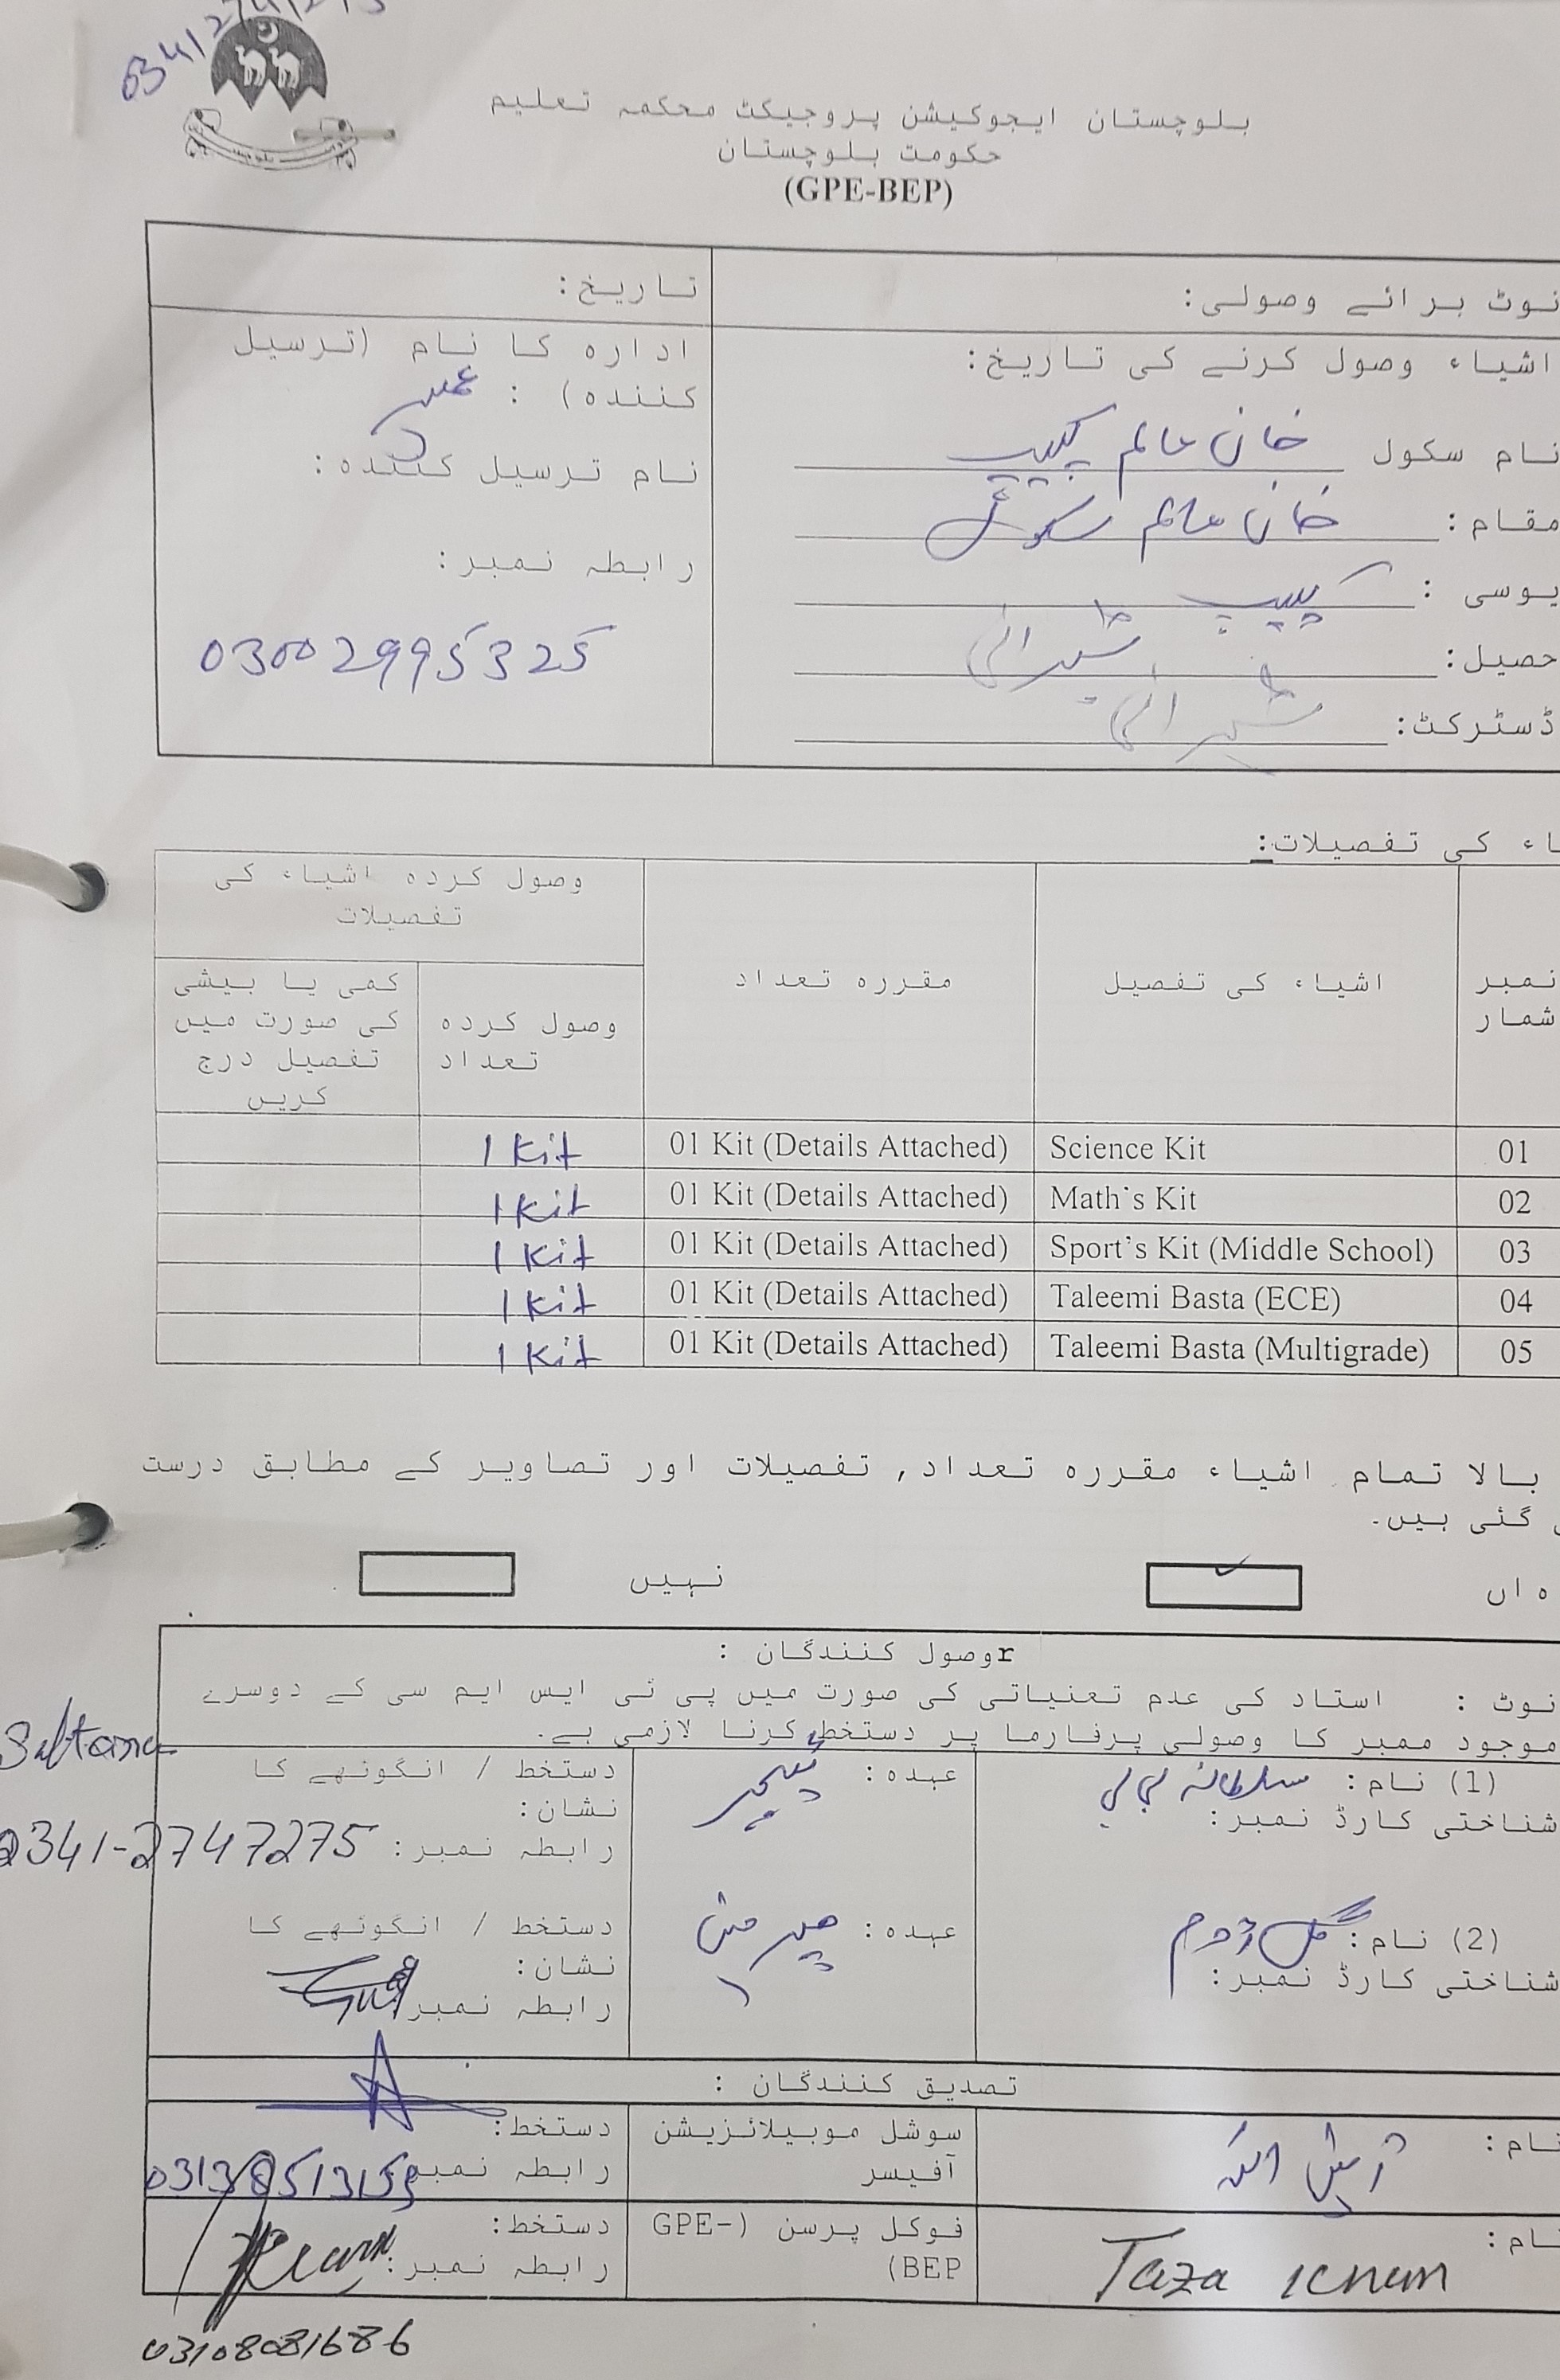 بلوچستان ایجوکیشن پروجیکٹ محکمہ تعلیم
حکومت بلوچستان
(GPE-BEP)
نوٹ برائے وصولی:
تاریخ:
اشیاء وصول کرنے کی تاریخ:
نام سکول خان عالم کیپ
مقام: خان عالم
یوسی : کیپ
حصیل: شیرانی
ڈسٹرکٹ: شیرانی
ادارہ کا نام (ترسیل
کنندہ) :
نام ترسیل کنندہ:
رابطہ نمبر:
03002995325
اء کی تفصیلات:
نمبر شمار
اشیاء کی تفصیل
مقررہ تعداد
وصول کردہ اشیاء کی تفصیلات
وصول کردہ تعداد
کمی یا بیشی کی صورت میں تفصیل درج کریں
01 Science Kit 01 Kit (Details Attached) 1 Kit
02 Math's Kit 01 Kit (Details Attached) 1 Kit
03 Sport's Kit (Middle School) 01 Kit (Details Attached) 1 Kit
04 Taleemi Basta (ECE) 01 Kit (Details Attached) 1 Kit
05 Taleemi Basta (Multigrade) 01 Kit (Details Attached) 1 Kit
بالا تمام اشیاء مقررہ تعداد, تفصیلات اور تصاویر کے مطابق درست
گئی ہیں۔
ہاں
نہیں
rوصول کنندگان :
نوٹ : استاد کی عدم تعنیاتی کی صورت میں پی ٹی ایس ایم سی کے دوسرے
موجود ممبر کا وصولی پرفارما پر دستخط کرنا لازمی ہے۔
(1) نام: سلطانہ بی بی
شناختی کارڈ نمبر:
عہدہ: ٹیچر
دستخط / انگوٹھے کا
نشان:
Sultana
رابطہ نمبر: 0341-2747275
(2) نام: گل
شناختی کارڈ نمبر:
عہدہ: چیرمین
دستخط / انگوٹھے کا
نشان:
رابطہ نمبر
تصدیق کنندگان :
نام:
سوشل موبیلائزیشن
آفیسر
دستخط:
رابطہ نمبر
نام: Taza Khan
فوکل پرسن (GPE-
BEP)
دستخط:
رابطہ نمبر:
03108081686